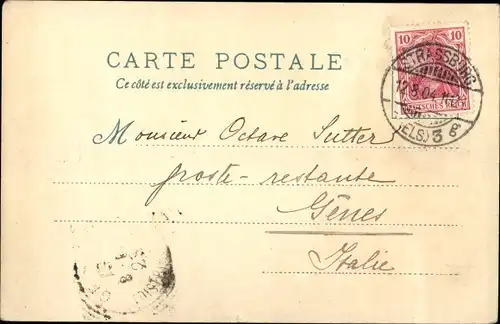 CARTE POSTALE
Ce côté est exclusivement réservé à l'adresse
10 10
DEUTSCHES REICH
STRASSBURG
12.8.04
(ELS.) 3 g
Monsieur Octave Sutter
poste-restante
Gênes
Italie